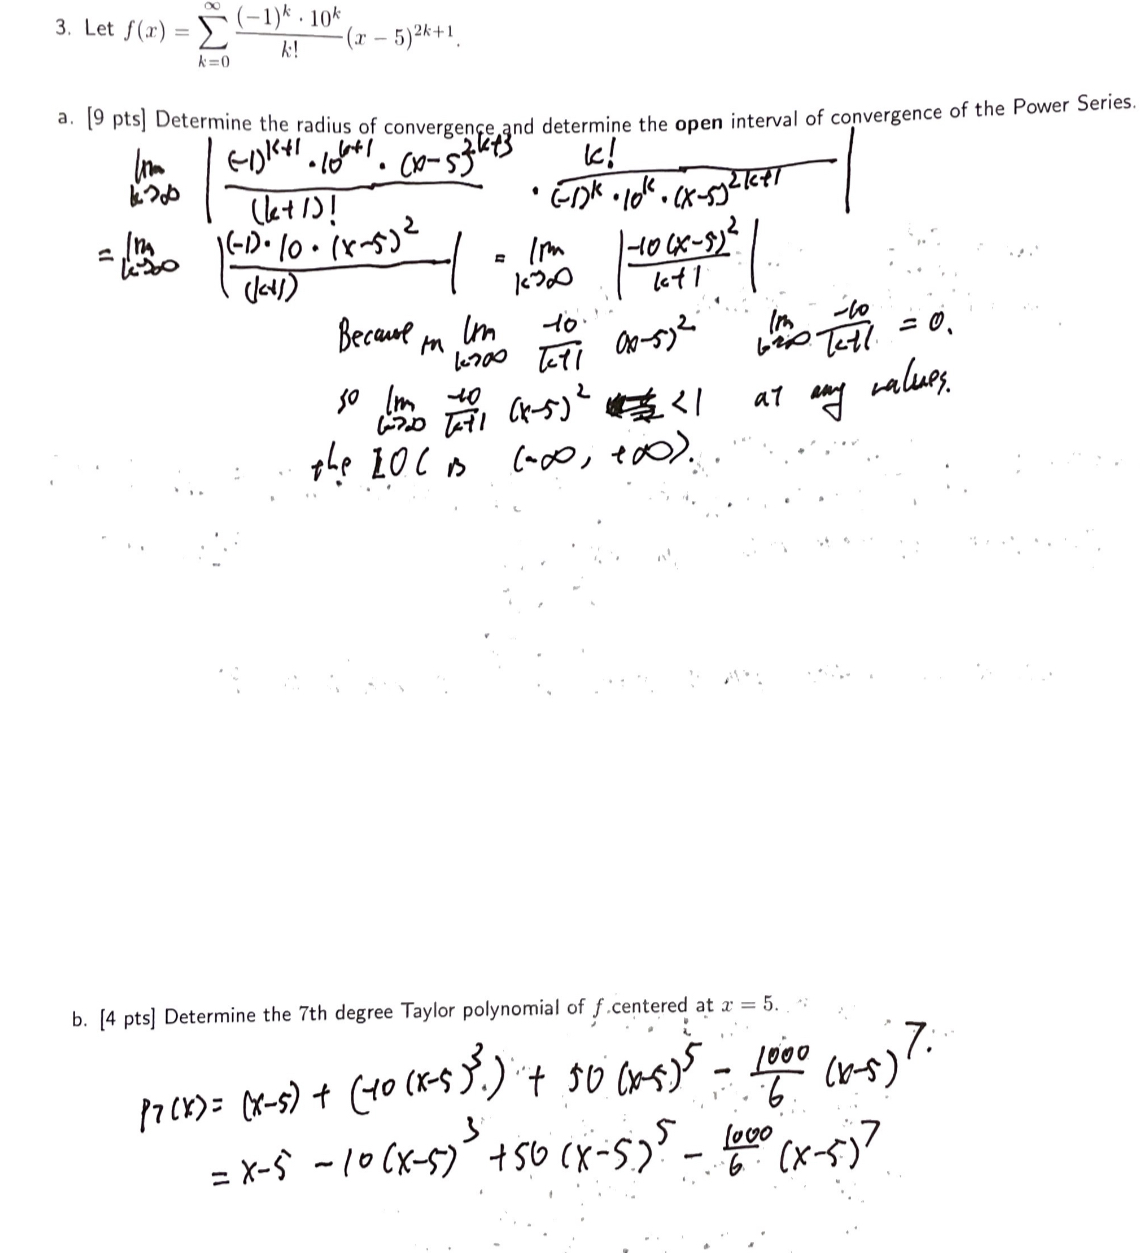 3. Let f(x) = ∑_{k=0}^{∞} \frac{(-1)^k · 10^k}{k!} (x − 5)^{2k+1}.
a. [9 pts] Determine the radius of convergence and determine the open interval of convergence of the Power Series.
lim_{k→∞} | \frac{(-1)^{k+1} · 10^{k+1} · (x-5)^{2k+3}}{(k+1)!} · \frac{k!}{(-1)^k · 10^k · (x-5)^{2k+1}} |
= lim_{k→∞} | \frac{(-1) · 10 · (x-5)^2}{(k+1)} | = lim_{k→∞} | \frac{-10(x-5)^2}{k+1} |
Because in lim_{k→∞} \frac{-10}{k+1} (x-5)^2 lim_{k→∞} \frac{-10}{k+1} = 0.
so lim_{k→∞} \frac{-10}{k+1} (x-5)^2 <1 at any values.
the IOC is (-∞, +∞).
b. [4 pts] Determine the 7th degree Taylor polynomial of f centered at x = 5.
P7(x) = (x-5) + (-10(x-5)^3.) + 50(x-5)^5 - \frac{1000}{6} (x-5)^7.
= x-5 - 10(x-5)^3 + 50(x-5)^5 - \frac{1000}{6} (x-5)^7